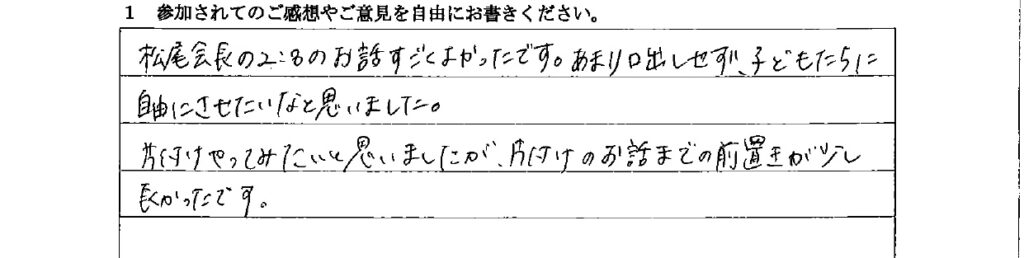 1 参加されてのご感想やご意見を自由にお書きください。
松尾会長の2:8のお話すごくよかったです。あまり口出しせず、子どもたちに
自由にさせたいなと思いました。
片付けやってみたいと思いましたが、片付けのお話までの前置きが少し
長かったです。